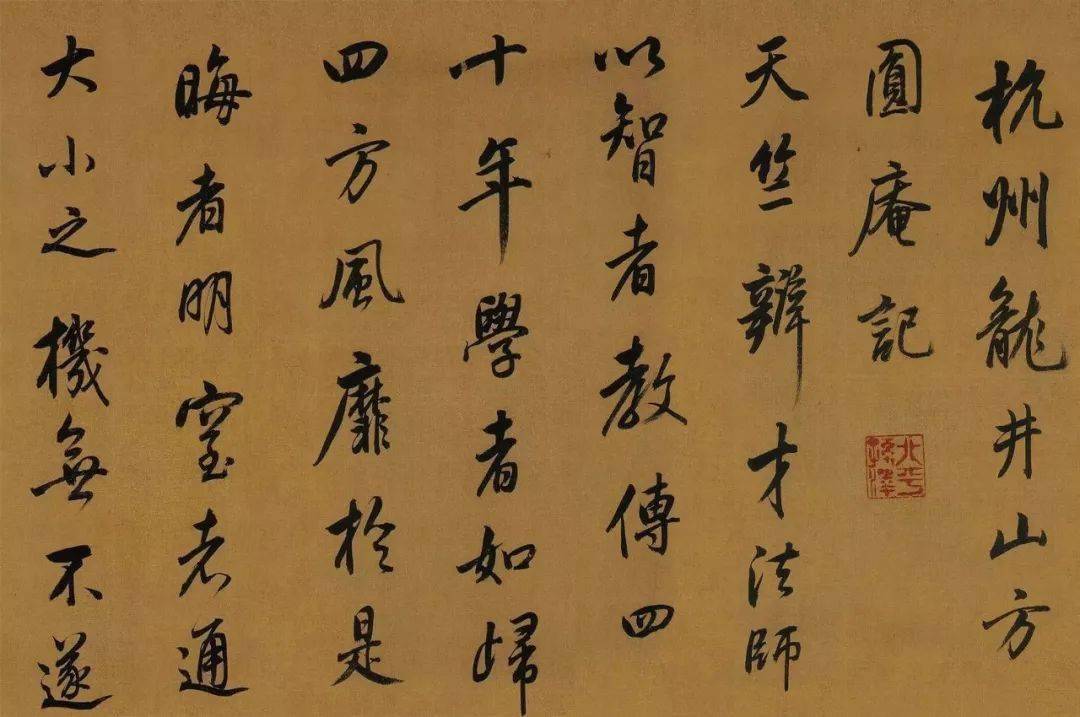 杭州龍井山方
圓庵記
天竺辯才法師
以智者教傳四
十年學者如歸
四方風靡於是
晦者明窒者通
大小之機無不遂